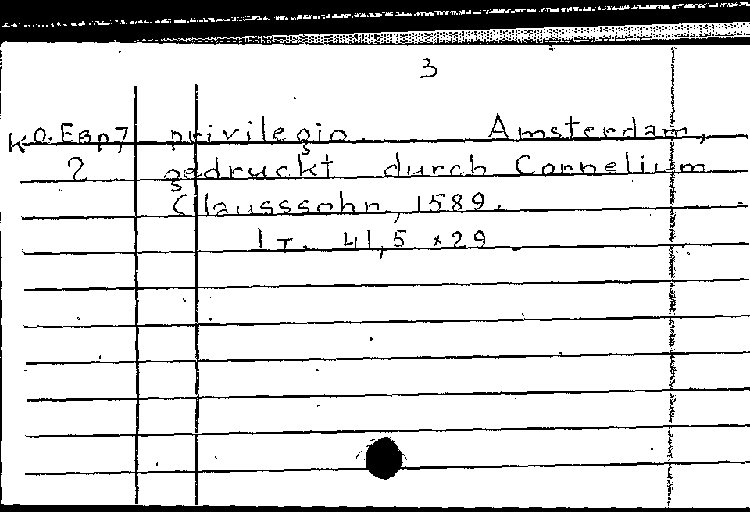 3
К О. Евр7 privilegio. Amsterdam,
2 gedruckt durch Cornelium
Clausssohn, 1589.
1 т. 41,5 × 29.